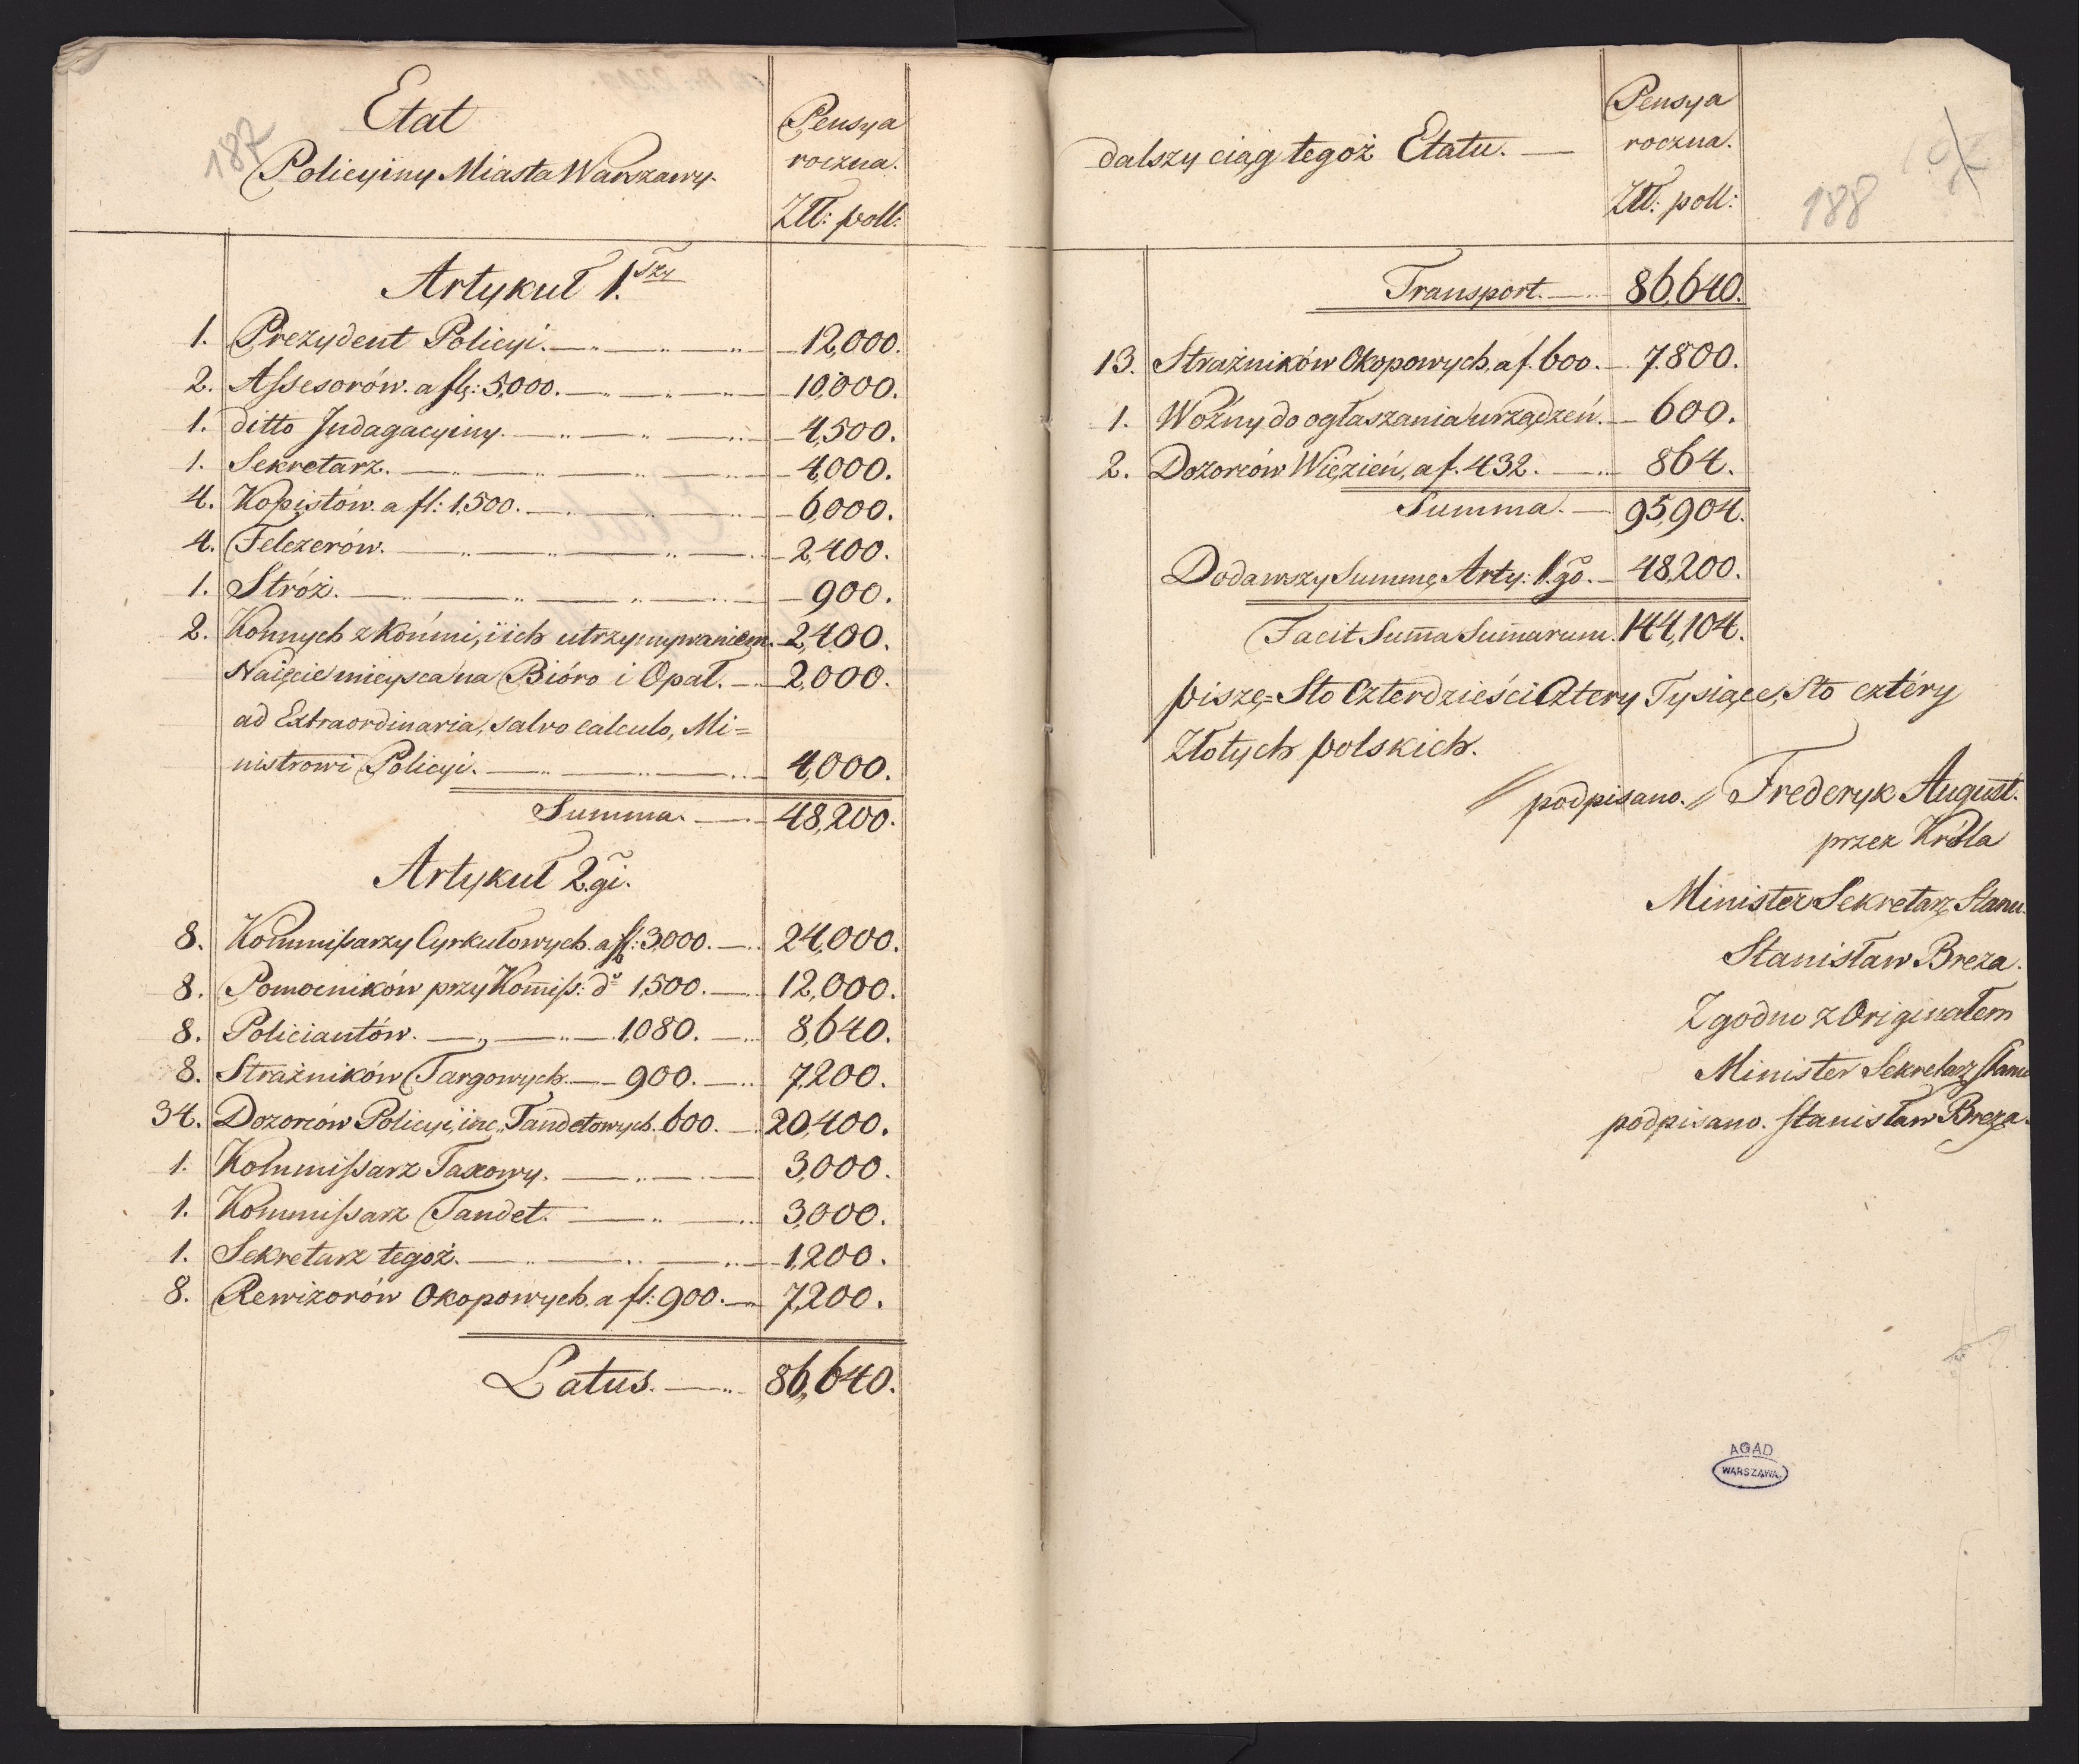 187
Etat
Policyiny Miasta Warszawy.
Pensya
roczna.
Złł: poll:
Artykuł 1.szy
1. Prezydent Policyi. 12,000.
2. Assesorów. a fl: 5,000. 10,000.
1. ditto Indagacyiny. 4,500.
1. Sekretarz. 4,000.
4. Kopistów. a fl: 1,500. 6,000.
4. Felczerów. 2,400.
1. Stróż. 900.
2. Konnych z końmi, i ich utrzymywaniem. 2,400.
Naięcie mieysca na Bióro i Opał. 2,000.
ad Extraordinaria, salvo calculo, Mi=
nistrowi Policyi. 4,000.
Summa. 48,200.
Artykuł 2.gi.
8. Kommissarzy Cyrkułowych. a fl: 3,000. 24,000.
8. Pomocników przy Kom̄iss: do 1,500. 12,000.
8. Policiantów. 1,080. 8,640.
8. Strażników Targowych. 900. 7,200.
34. Dozorców Policyi, inc. Tandetowych. 600. 20,400.
1. Kommissarz Taxowy. 3,000.
1. Kommissarz Tandet. 3,000.
1. Sekretarz tegoż. 1,200.
8. Rewizorów Okopowych. a fl: 900. 7,200.
Latus. 86,640.
dalszy ciąg tegoż Etatu.
Pensya
roczna.
Złł: poll:
188
Transport. 86,640.
13. Strażników Okopowych, a f. 600. 7.800.
1. Woźny do ogłaszania urządzeń. 600.
2. Dozorców Więzień, a f. 432. 864.
Summa. 95,904.
Dodawszy Summę Arty: 1.go. 48,200.
Facit Sum̄a Sum̄arum. 144,104.
piszę = Sto Czterdzieści Cztery Tysiące, Sto cztéry
Złotych polskich.
// podpisano. // Frederyk August.
przez Króla
Minister Sekretarz Stanu.
Stanisław Breza.
Zgodno z Originałem
Minister Sekretarz Stanu
podpisano. Stanisław Breza.
AGAD
WARSZAWA